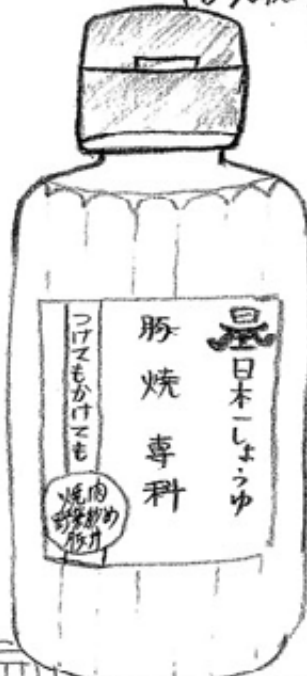 日本一しょうゆ
豚焼専科
つけてもかけても
焼肉
野菜炒め
豚丼